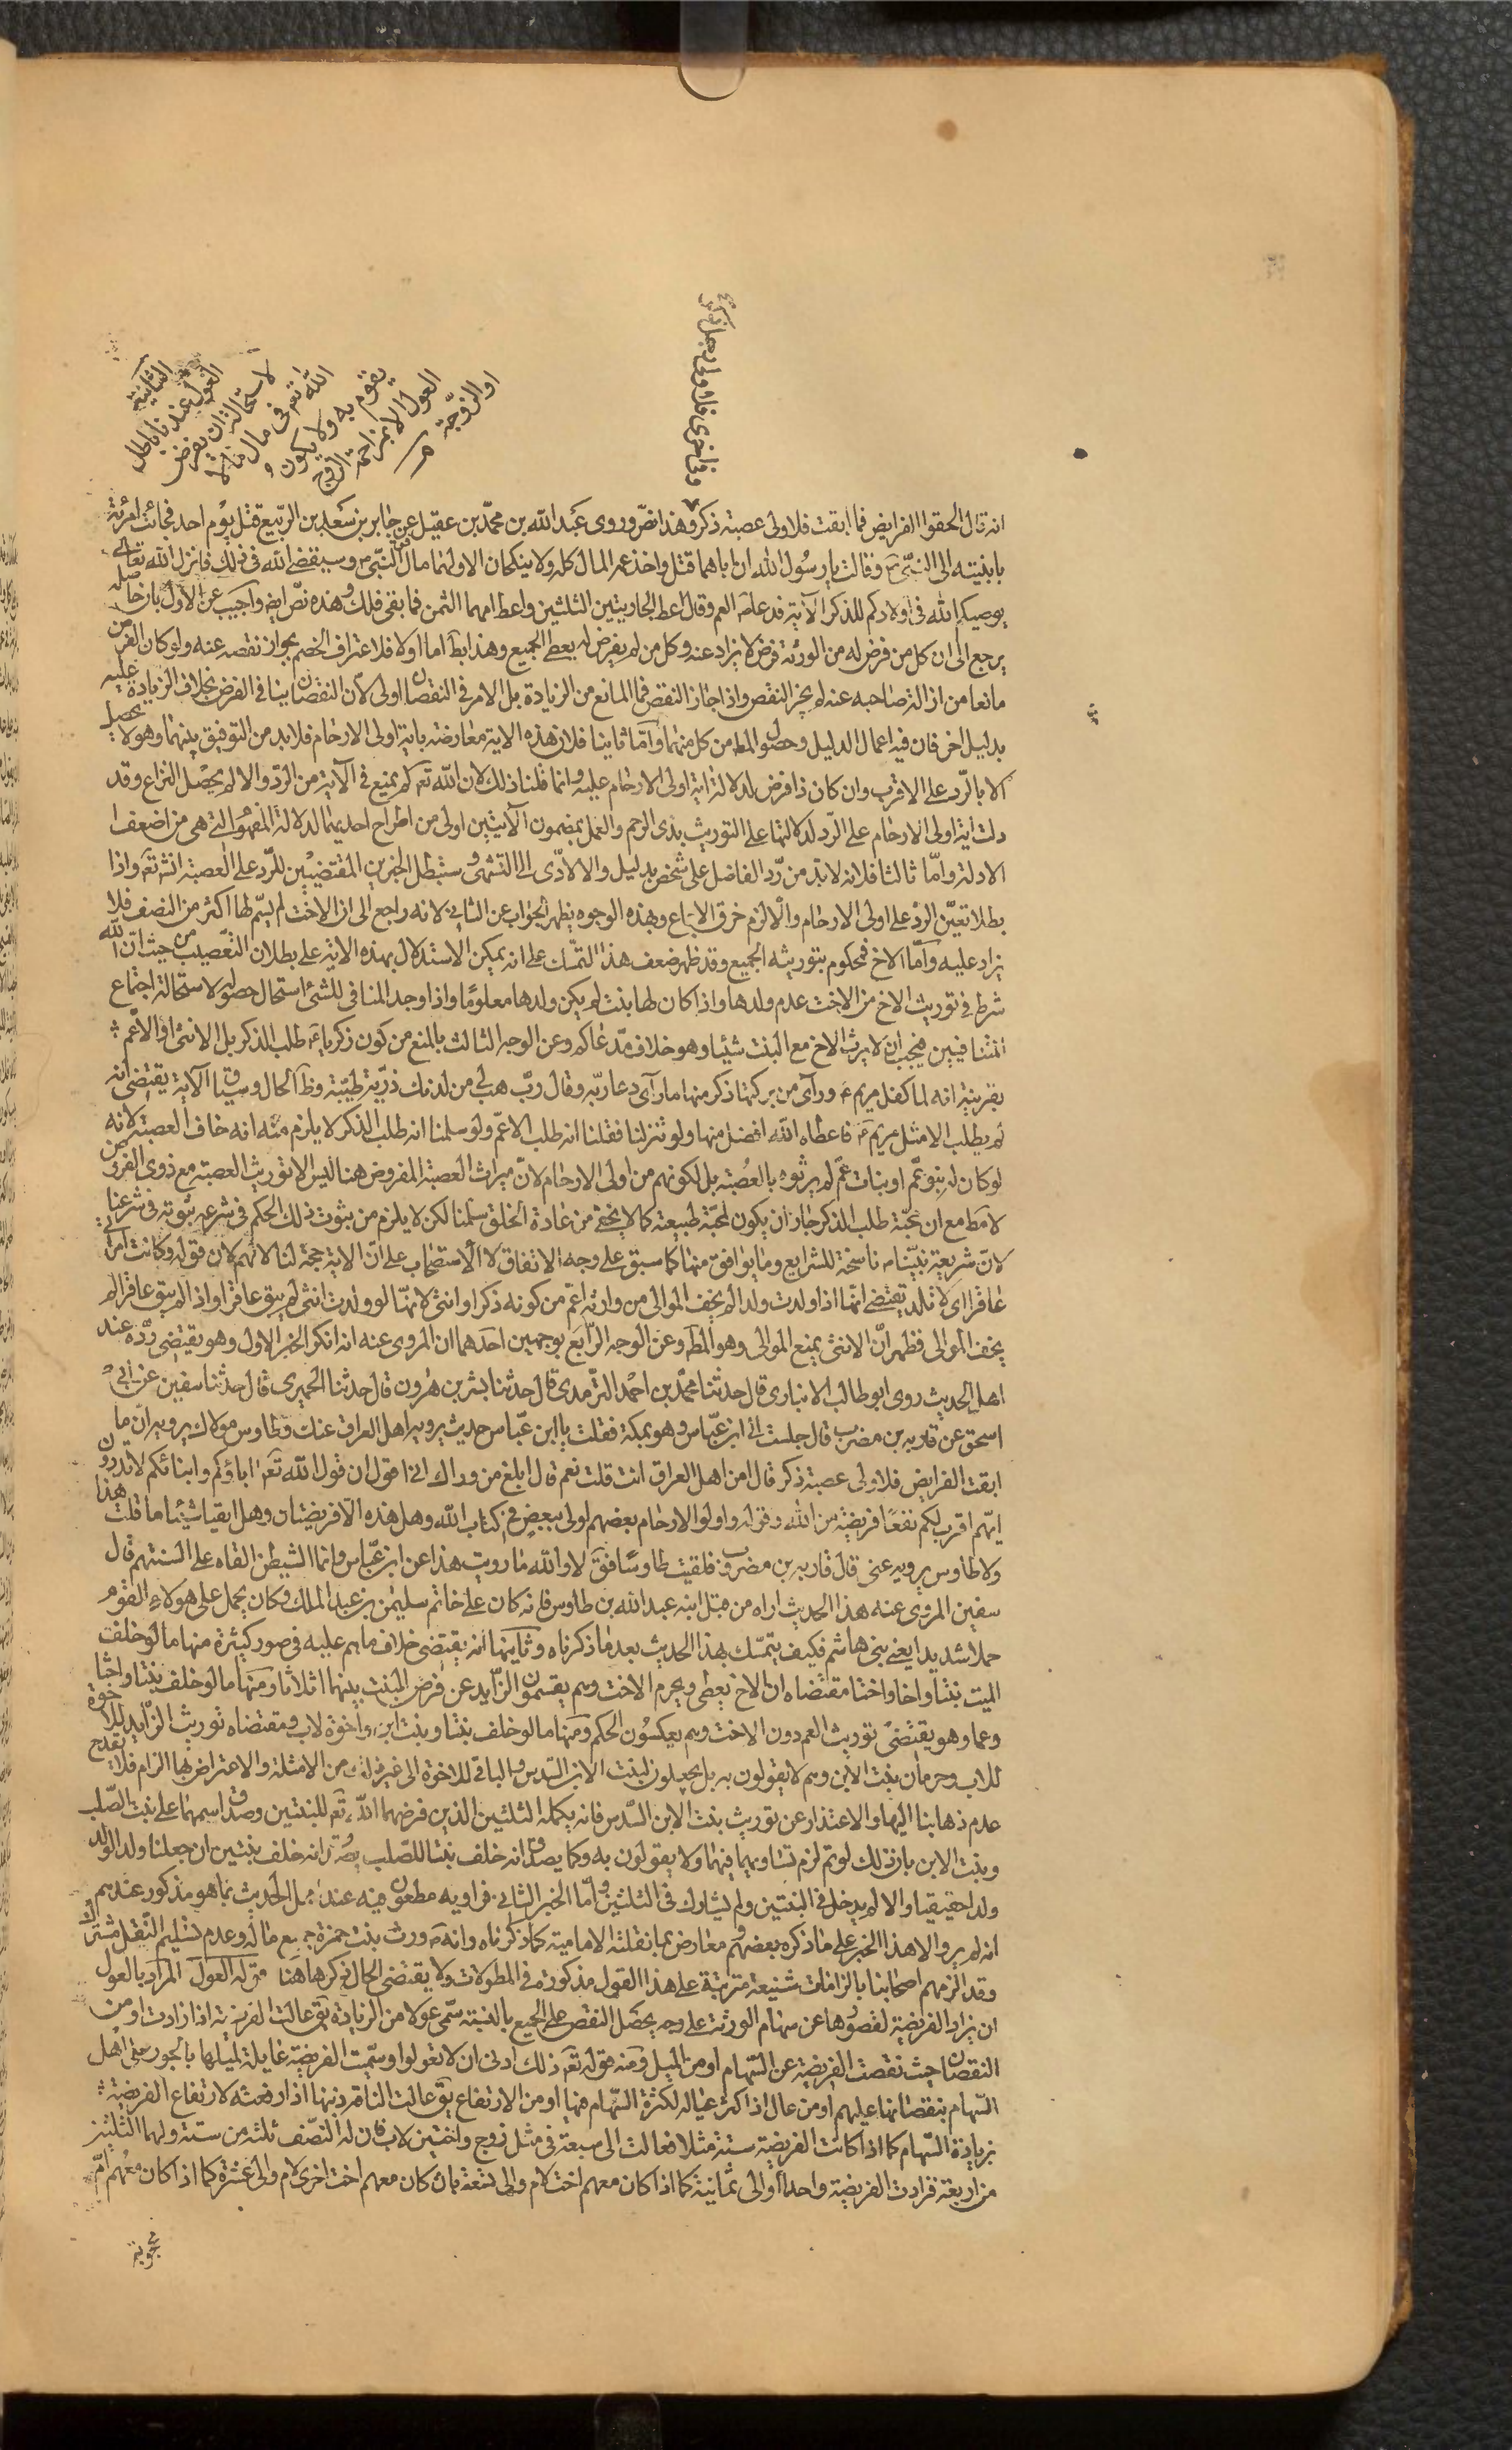 الثانية
العول عندنا باطل
لاستحالة ان يفرض
الله تعم فى مال ما لا
يقوم به ولا يكون
العول الا بمزاحمة الزوج
او الزوجة
وفى اخرى فلاولى رجل ذكر
انه قال الحقوا الفرايض فما ابقت فلاولى عصبة ذكر وهذا نصّ وروى عبد الله بن محمّد بن عقيل عن جابر بن سعد بن الربيع قتل يوم احد فجائت امرئته
بابنتيه الى النبّى ص وقالت يا رسول الله ان اباهما قتل واخذ عمهما المال كله ولا ينكحان الا ولهما مال فقال النبّى ص سيقضے الله فى ذلك فانزل الله تعالى
يوصيكم الله فى اولادكم للذكر الآية فدعا ص العم وقال اعط الجاريتين الثلثين واعط امهما الثمن فما بقى فلك وهذه نصّ ايض واجيب عن الاول بان حاصله
يرجع الى ان كل من فرض له من الورثة فرض لا يزاد عنه وكل من لم يفرض له يعطے الجميع وهذا بط اما اولا فلاعتراف الخصم بجواز نقصه عنه ولو كان الفرض
مانعا من ازالة صاحبه عنه لم يجز النقص واذا جاز النقص فما المانع من الزيادة بل الامر فى النقصان اولى لان النقصان ينافى الفرض بخلاف الزيادة عليه
بدليل اخر فان فيه اعمال الدليل وحصول المط من كل منهما وامّا ثانيا فلان هذه الاية معارضة باية اولى الارحام فلابد من التوفيق بينهما وهو لا يحصل
الا بالرّد على الاقرب وان كان ذا فرض لدلالة اية اولى الارحام عليه وانما قلنا ذلك لان الله تعم لم يمنع فى الآية من الرّد والا لم يحصل النزاع وقد
دلت اية اولى الارحام على الرّد لدلالتها على التوريث بذى الرحم والعمل بمضمون الآيتين اولى من اطراح احديهما لدلالة المفهوم التى هى من اضعف
الادلة وامّا ثالثا فلانه لابد من ردّ الفاضل على شخص بدليل والا لادّى الى التشهى وسنبطل الخبرين المقتضيين للرّد على العصبة انش تعم واذا
بطلا تعيّن الردّ على اولى الارحام والّا لزم خرق الاجماع وبهذه الوجوه يظهر الجواب عن الثانى لانه راجع الى ان الاخت لم يسّم لها اكثر من النصف فلا
يزاد عليه وامّا الاخ فمحكوم بتوريثه الجميع وقد ظهر ضعف هذا التمسّك على انه يمكن الاستدلال بهذه الاية على بطلان التعصيب من حيث ان الله
شرط فى توريث الاخ من الاخت عدم ولدها واذا كان لها بنت لم يكن ولدها معلومًا واذا وجد المنافى للشئ استحال حصوله لاستحالة اجتماع
المتنافيين فيجب ان لا يرث الاخ مع البنت شيئا وهو خلاف مدّعاكم وعن الوجه الثالث بالمنع من كون زكريا ع طلب الذكر بل الانثى او الاعم
بقرينة انه لما كفل مريم ع وراى من بركتها ذكر منها ما راى دعا ربّه وقال ربّ هب لى من لدنك ذرّية طيّبة وظ الحال وسياق الآية يقتضى انه
لم يطلب الا مثل مريم ع فاعطاه الله افضل منها ولو تنزلنا فقلنا انه طلب الاعمّ ولو سلمنا انه طلب الذكر لا يلزم منه انه خاف العصبة لانه
لو كان له بنو عمّ او بنات عمّ لم يرثوه بالعصبة بل لكونهم من اولى الارحام لانّ ميراث العصبة المفروض هنا ليس الا توريث العصبة مع ذوى الفروض
لا مط مع ان محبّة طلب الذكر جاز ان يكون لمحبّة طبيعته كما لا يخفى من عادة الخلق سلّمنا لكن لا يلزم من ثبوت ذلك الحكم فى شرعه ثبوته فى شرعنا
لانّ شريعة نبيّنا ص ناسخة للشرايع وما يوافق منها كما سبق على وجه الاتفاق لا الاستصحاب على انّ الاية حجة لنا لا لهم لان قوله وكانت امرأتى
عاقرا اى لا تلد يقتضے انها اذا ولدت ولدا لم يخف الموالى من وارثه اعّم من كونه ذكرا او انثى لانها لو ولدت انثى لم يبق عاقرا واذا لم يبق عاقرا لم
يخف الموالى فظهر انّ الانثى يمنع الموالى وهو المط وعن الوجه الرّابع بوجهين احدهما ان المروى عنه انه انكر الخبر الاول وهو يقتضى ردّه عند
اهل الحديث روى ابو طالب الانبارى قال حدثنا محمّد بن احمد التّرمدى قال حدثنا بشر بن هرون قال حدثنا الحميرى قال حدثنا سفين عن ابى
اسحق عن قاربه بن مضرب قال جلست الى ابن عبّاس وهو بمكة فقلت يا ابن عبّاس حديث يرويه اهل العراق عنك وطاوس مولاك يرويه انّ ما
ابقت الفرايض فلاولى عصبة ذكر قال امن اهل العراق انت قلت نعم قال ابلغ من وراك انى اقول ان قول الله تعم اباؤكم وابنائكم لا تدرون
ايّهم اقرب لكم نفعًا فريضة من الله وقوله واولوا الارحام بعضهم اولى ببعض فى كتاب الله وهل هذه الّا فريضتان وهل ابقيا شيئا ما قلت هذا
ولا طاوس يرويه عنى قال قاربه بن مضرب فلقيت طاوسًا فق لا والله ما رويت هذا عن ابن عبّاس وانما الشيطن القاه على السنتهم قال
سفين المروى عنه هذا الحديث اراه من قبل ابنه عبد الله بن طاوس فانه كان على خاتم سليمن بن عبد الملك وكان يحمل على هولاء القوم
حملا شديدا يعنے بنى هاشم فكيف يتمسّك بهذا الحديث بعد ما ذكرناه وثانيهما انه يقتضى خلاف ما هم عليه فى صور كثيرة منها ما لو خلف
الميت بنتا واخا واختا مقتضاه ان الاخ يعطى ويحرم الاخت وهم يقسمون الزّايد عن فرض البنت بينهما اثلاثا ومنها ما لو خلف بنتا واختا
وعما وهو يقتضى توريث العم دون الاخت وهم يعكسون الحكم ومنها ما لو خلف بنتا وبنت ابن واخوة لاب ومقتضاه توريث الزّايد للاخوة
للاب وحرمان بنت الابن وهم لا يقولون به بل يجعلون لبنت الابن السّدس والباقى للاخوة الى غير ذلك من الامثلة والاعتراض بها الزام فلا يقدح
عدم ذهابنا اليها والاعتذار عن توريث بنت الابن السّدس فانه تكملة الثلثين الذين فرضهما الله تعم للبنتين وصدق اسمهما على بنت الصّلب
وبنت الابن بان ذلك لو تم لزم تساويهما فيهما ولا يقولون به وكما يصدق انه خلف بنتا للصّلب يصدق انه خلف بنتين ان جعلنا ولد الولد
ولدا حقيقيا والا لم يدخل فى البنتين ولم يشارك فى الثلثين وامّا الخبر الثانى فراويه مطعون فيه عند اهل الحديث بما هو مذكور عندهم
انه لم يرو الا هذا الخبر على ما ذكره بعضهم ومعارض بما نقلته الامامية كما ذكرناه وانه ص ورث بنت حمزة جميع ماله وعدم تسليم النّقل مشترك
وقد الزمهم اصحابنا بالزامات شنيعة مترتبة على هذا القول مذكورة فى المطولات ولا يقتضى الحال ذكرها هنا قوله العول المراد بالعول
ان يزاد الفريضة لقصورها عن سهام الورثة على وجه يحصل النقص على الجميع بالنسبة سمّى عولا من الزيادة يق عالت الفريضة اذا زادت او من
النقصان حيث نقصت الفريضة عن السّهام او من الميل ومنه قوله تعم ذلك ادنى ان لا تعولوا وسمّيت الفريضة عايلة لميلها بالجور على اهل
السّهام بنقصانها عليهم او من عال اذا كثر عياله لكثرة السّهام فيها او من الارتفاع يق عالت الناقة ذنبها اذا رفعته لارتفاع الفريضة
بزيادة السّهام كما اذا كانت الفريضة ستة مثلا فعالت الى سبعة فى مثل زوج واختين لاب فان له النّصف ثلثة من ستة ولهما الثلثين
من اربعة فزادت الفريضة واحدا او الى ثمانية كما اذا كان معهم اخت لام والى تسعة بان كان معهم اخت اخرى لام والى عشرة كما اذا كان معهم امّ
محجوبة